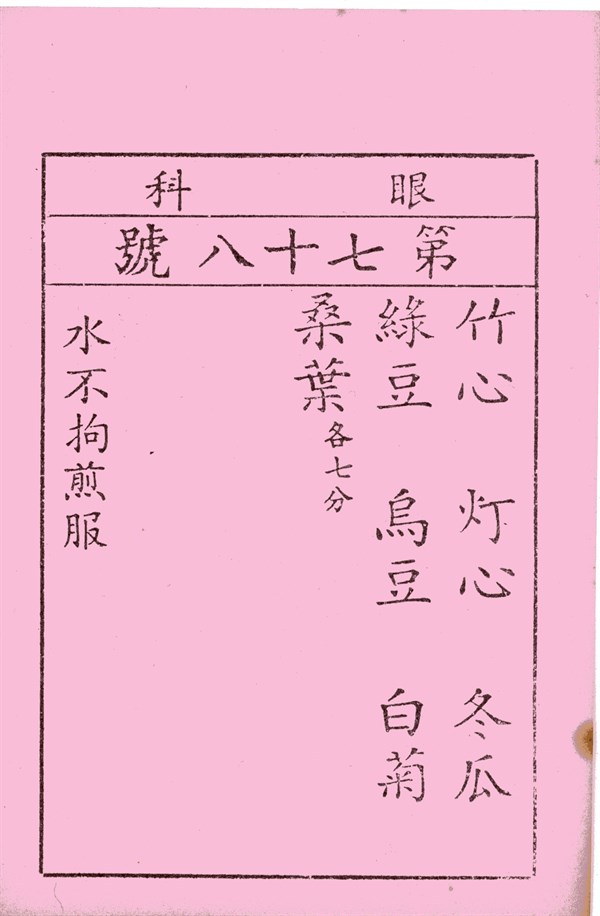 眼科
第七十八號
竹心 灯心 冬瓜
綠豆 烏豆 白菊
桑葉各七分
水不拘煎服